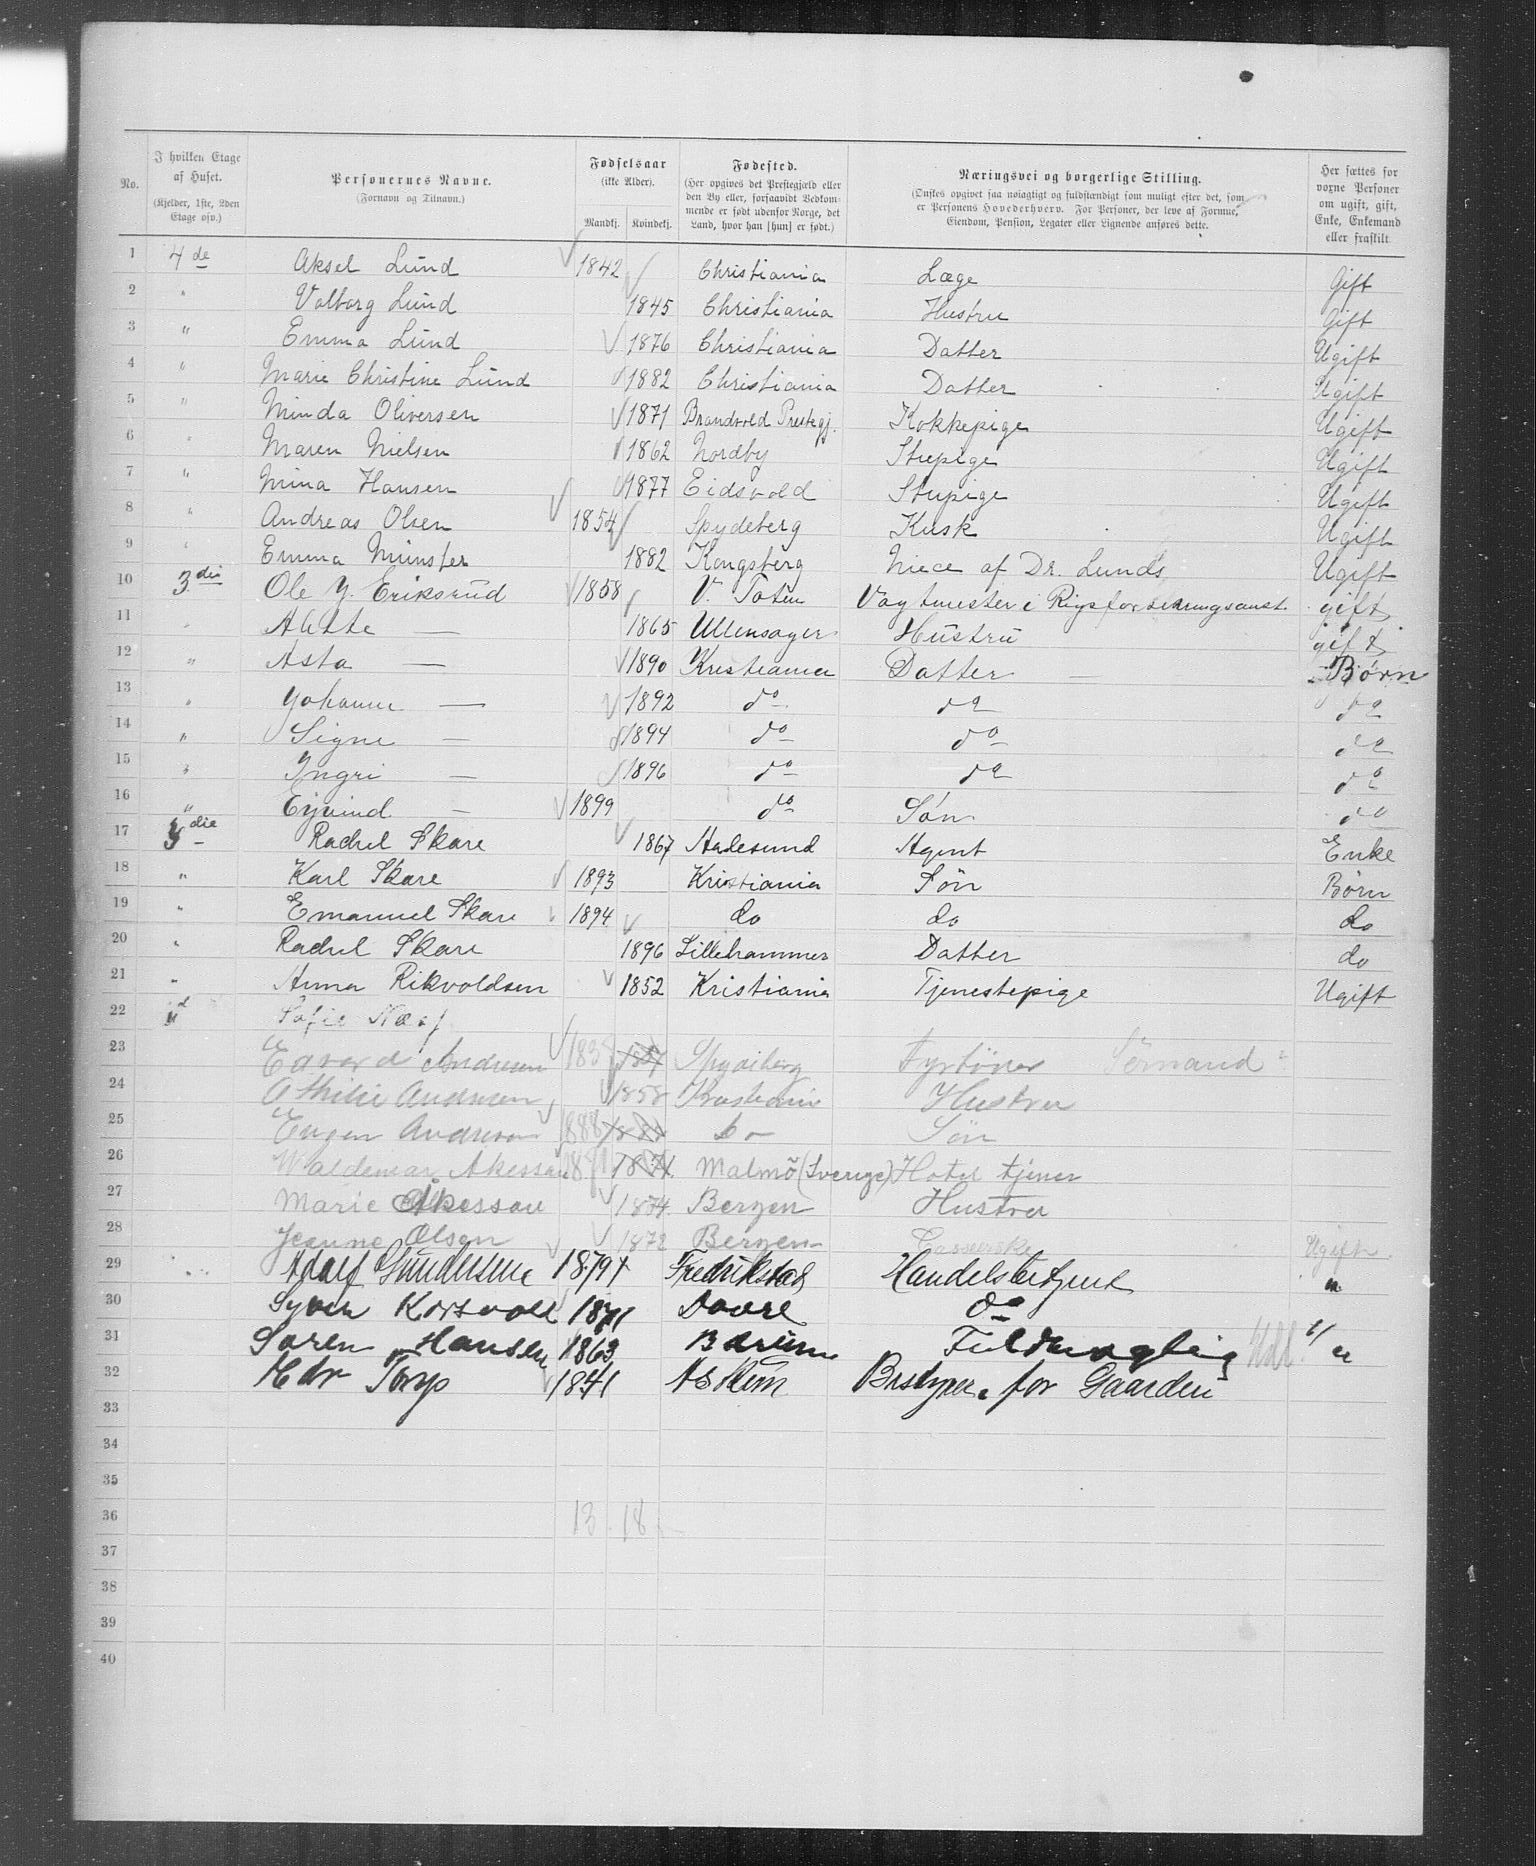 No.
I hvilken Etage af Huset. (Kjelder, 1ste, 2den Etage osv.)
Personernes Navne. (Fornavn og Tilnavn.)
Fødselsaar (ikke Alder). Mandkj. Kvindekj.
Fødested. (Her opgives det Prestegjæld eller den By eller, forsaavidt Vedkommende er født udenfor Norge, det Land, hvor han [hun] er født.)
Næringsvei og borgerlige Stilling. (Ønskes opgivet saa nøiagtigt og fuldstændigt som muligt efter det, som er Personens Hovederhverv. For Personer, der leve af Formue, Eiendom, Pension, Legater eller Lignende anføres dette.
Her sættes for voxne Personer om ugift, gift, Enke, Enkemand eller fraskilt.
1 4de Aksel Lund 1842 Christiania Læge Gift
2 " Valborg Lund 1845 Christiania Hustru Gift
3 " Emma Lund 1876 Christiania Datter Ugift
4 " Marie Christine Lund 1882 Christiania Datter Ugift
5 " Minda Oliversen 1871 Brandvold Prestegj. Kokkepige Ugift
6 " Maren Nielsen 1862 Nordby Stuepige Ugift
7 " Mina Hansen 1877 Eidsvold Stuepige Ugift
8 " Andreas Olsen 1854 Spydeberg Kusk Ugift
9 " Emma Münster 1882 Kongsberg Niece af Dr. Lunds Ugift
10 3die Ole J. Eriksrud 1858 V. Toten Vagtmester i Rigsforsikringsanst. gift
11 Alette — 1865 Ullensager Hustru gift
12 " Asta — 1890 Kristiania Datter — Børn
13 " Johanne — 1892 do do do
14 " Signe — 1894 do do do
15 " Yngri — 1896 do do do
16 " Eyvind — 1899 do Søn do
17 3die Rachel Skare 1867 Aalesund Agent Enke
18 " Karl Skare 1893 Kristiania Søn Børn
19 " Emanuel Skare 1894 do do do
20 " Rachel Skare 1896 Lillehammer Datter do
21 " Anna Rikvoldsen 1852 Kristiania Tjenestepige Ugift
22 Sofie
23 Edvard Andresen Spydeberg Fyrbøder Sømand
24 Othilie Andresen 1858 Kristiania Hustru
25 Eugen Andresen 1887 Do Søn
26 Waldemar Akesson 1871 Malmö (Sverige) Hotel tjener
27 Marie Akesson 1874 Bergen Hustru
28 Jeanne Olsen 1872 Bergen Ugift
29 Adolf Gundersen 1879 Fredrikstad Handelsbetjent "
30 Syver Korsvold 1871 Dovre do
31 Søren Hansen 1863 Bærum Fuldmægtig "
32 Torp 1841 Askim Bestyrer for Gaarden
33
34
35
36 13 18
37
38
39
40